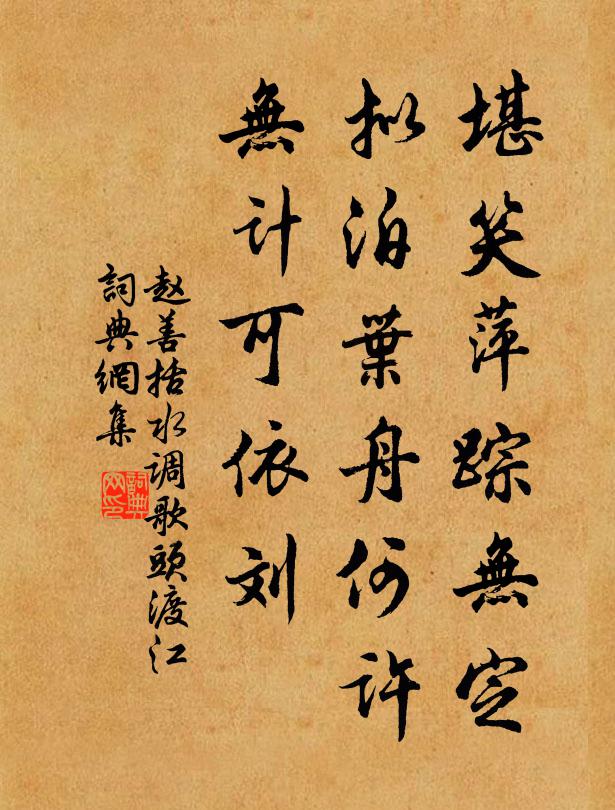 堪笑萍踪無定
拟泊葉舟何许
無计可依刘
赵善括水调歌頭渡江
詞典網集
詞典
网印